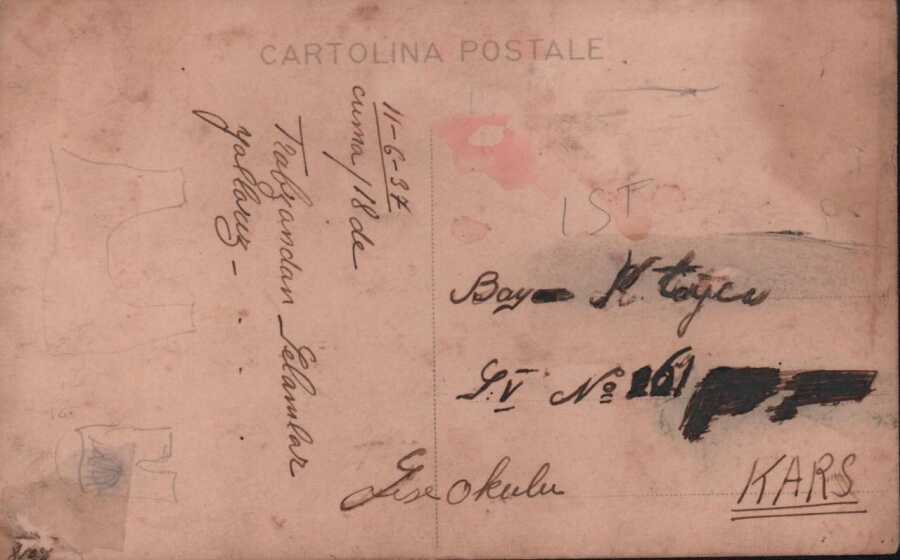 CARTOLINA POSTALE
11-6-37
cuma/18de
Trabzandan Selamlar
yollarız -
IST
Bay
S.V No 261
Lise Okulu
KARS